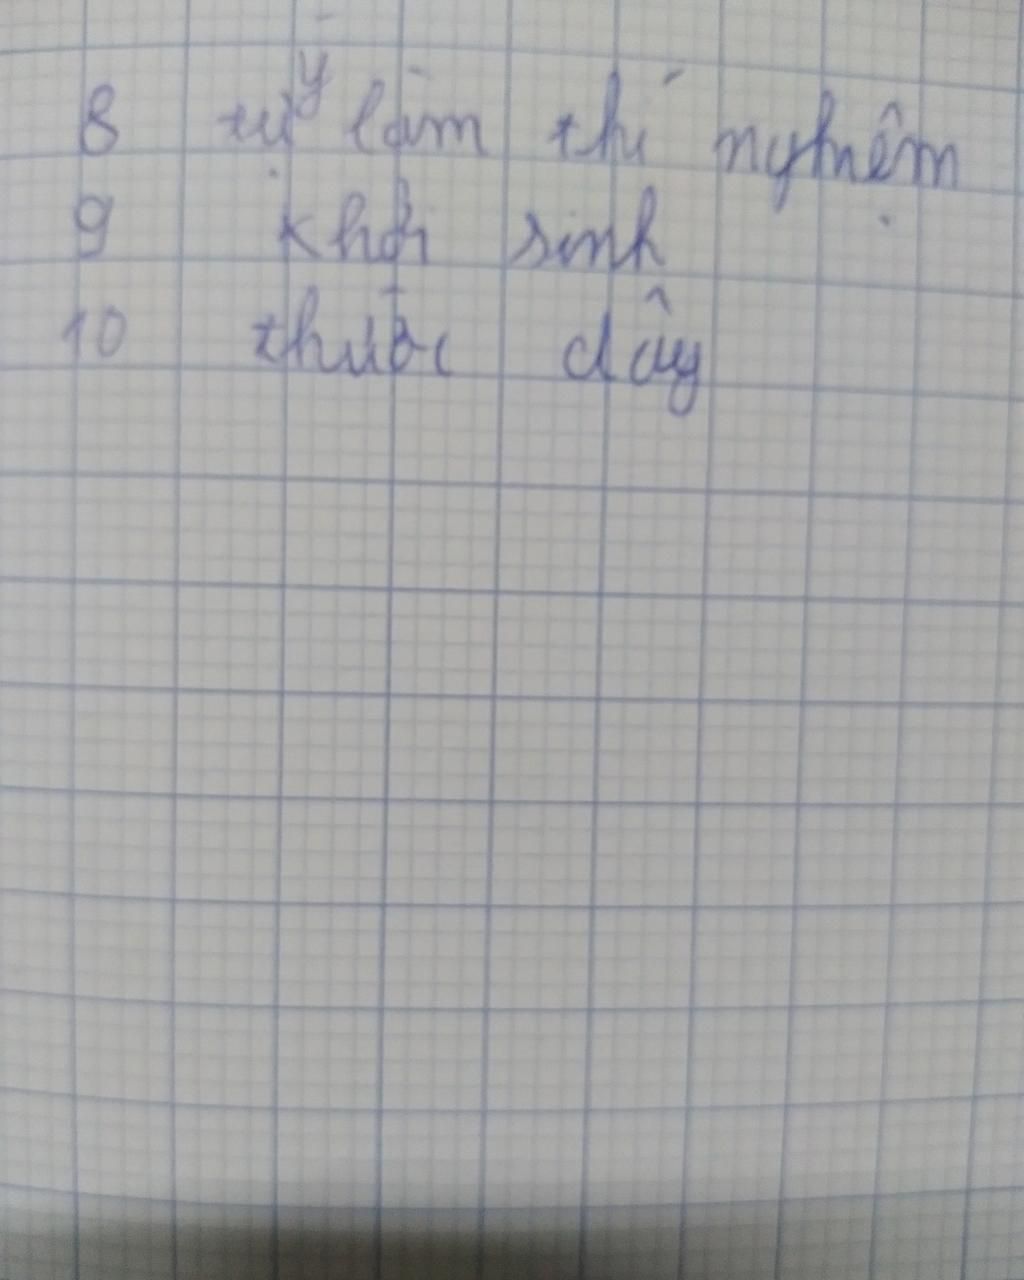 8 tự ý làm thí nghệm
9 khởi sinh
10 thước dây